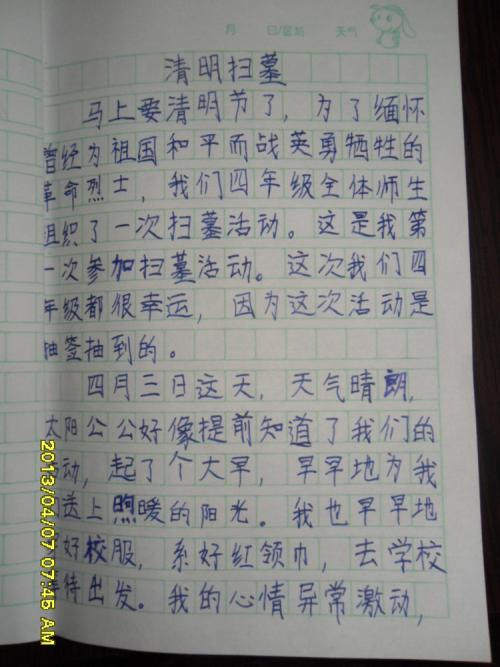 月 日/星期 天气
清明扫墓
马上要清明节了，为了缅怀
曾经为祖国和平而战英勇牺牲的
革命烈士，我们四年级全体师生
组织了一次扫墓活动。这是我第
一次参加扫墓活动。这次我们四
年级都很幸运，因为这次活动是
抽签抽到的。
四月三日这天，天气晴朗，
太阳公公好像提前知道了我们的
动，起了个大早，早早地为我
送上煦暖的阳光。我也早早地
好校服，系好红领巾，去学校
待出发。我的心情异常激动，
2013/04/07 07:45 AM